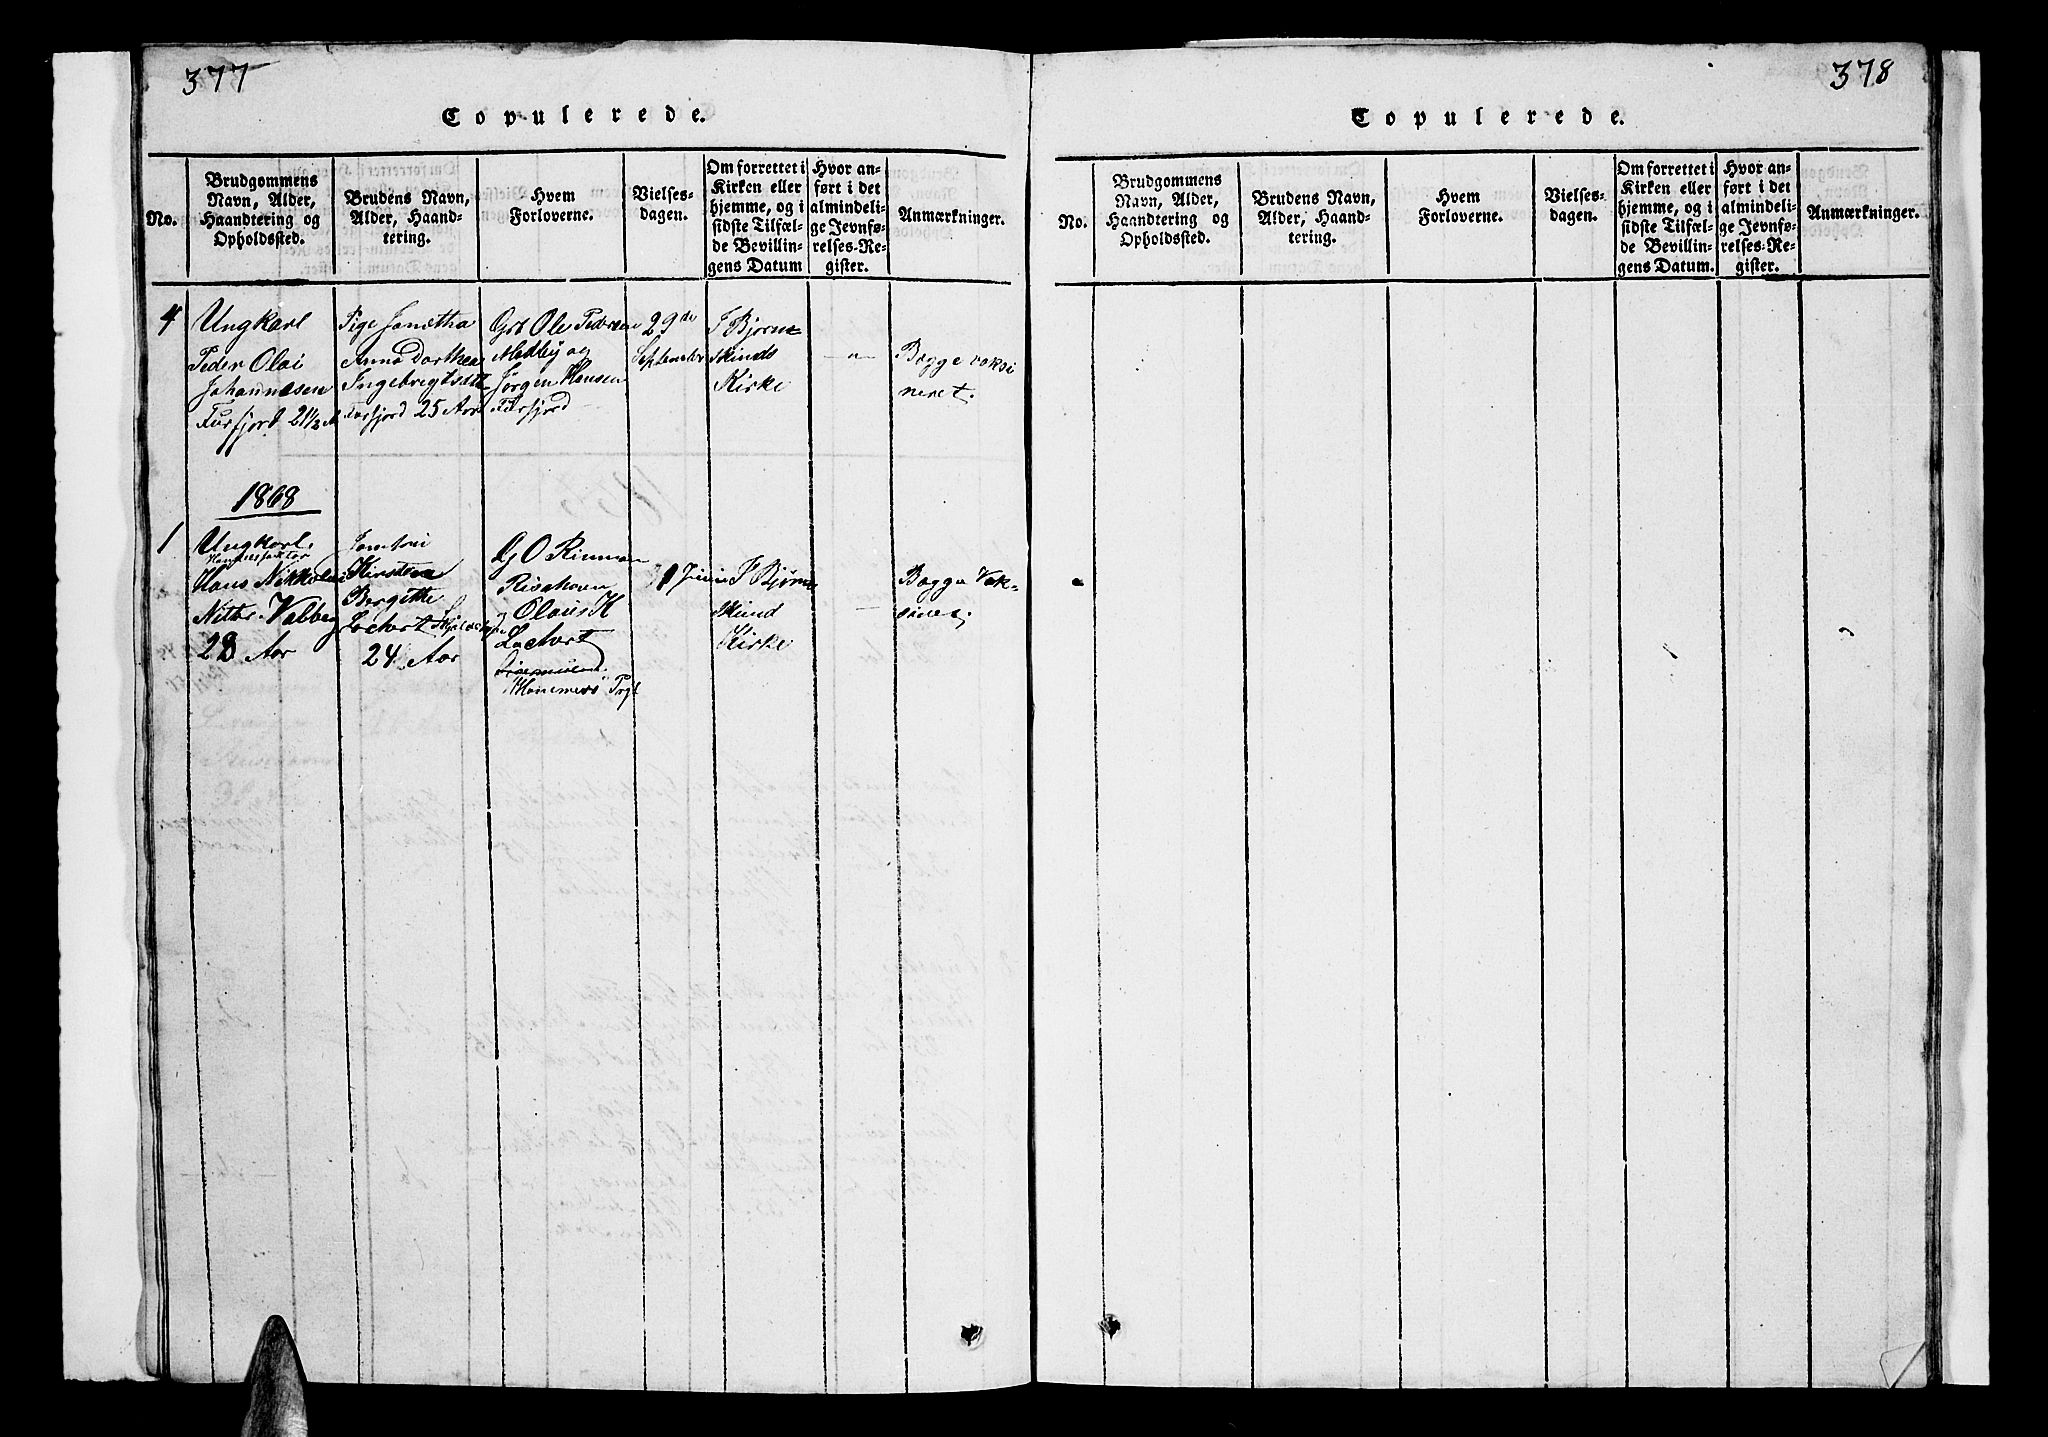 377
Copulerede.
No.
Brudgommens
Navn, Alder,
Haandtering og
Opholdssted.
Brudens Navn,
Alder, Haand-
tering.
Hvem
Forloverne.
Vielses-
dagen.
Om forrettet i
Kirken eller
hjemme, og i
sidste Tilfæl-
de Bevillin-
gens Datum
Hvor an-
ført i det
almindeli-
ge Jevnfø-
relses-Re-
gister.
Anmærkninger.
4
Ungkarl
Peder Olai
Johannesen
Furfjord 21 1/2 A
Pige Janetha
Anna Dorthea
Ingebrigtsdtt
Furfjord 25 Aar
Grb Ole Pedersen
Medby og
Jørgen Hansen
Furfjord
29de
September
I Bjørn
skinds
Kirke
—"—
Begge vaksi
neret.
1868
1
Ungkarl.
Handelsfaktor
Hans Nikkolai
Valberg
28 Aar
Jomfru
Kirstine
Bergitte
Lockert
24 Aar
G O Rinman
Risøhavn
og Olaus H
Lockert
1 Juni
I Bjørn
skind
Kirke
—
Begge Vak-
378
Copulerede.
No.
Brudgommens
Navn, Alder,
Haandtering og
Opholdssted.
Brudens Navn,
Alder, Haand-
tering.
Hvem
Forloverne.
Vielses-
dagen.
Om forrettet i
Kirken eller
hjemme, og i
sidste Tilfæl-
de Bevillin-
gens Datum.
Hvor an-
ført i det
almindeli-
ge Jevnfø-
relses-Re-
gister.
Anmærkninger.